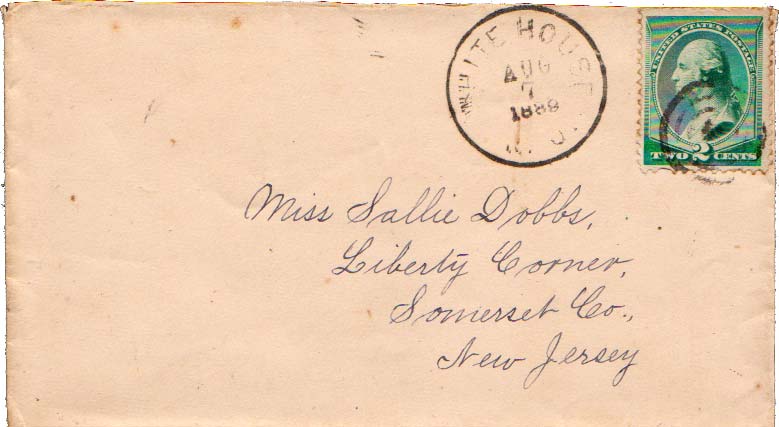 WHITE HOUSE
AUG
7
1889
N.J.
UNITED STATES POSTAGE
TWO 2 CENTS
Miss Sallie Dobbs,
Liberty Corner,
Somerset Co.,
New Jersey